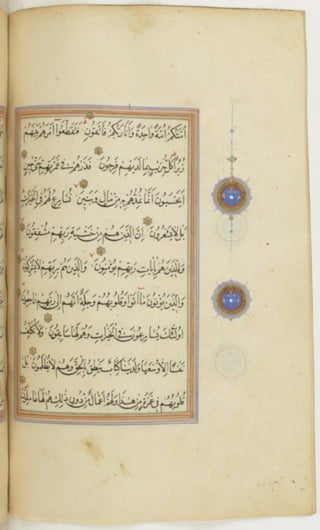 اُمَّتُكُمْ اُمَّةً وَاحِدَةً وَاَنَا رَبُّكُمْ فَاتَّقُونِ فَتَقَطَّعُوا اَمْرَهُمْ بَيْنَهُمْ
زُبُرًا كُلُّ حِزْبٍ بِمَا لَدَيْهِمْ فَرِحُونَ فَذَرْهُمْ فِي غَمْرَتِهِمْ حَتَّى حِينٍ
اَيَحْسَبُونَ اَنَّمَا نُمِدُّهُمْ بِهِ مِنْ مَالٍ وَبَنِينَ نُسَارِعُ لَهُمْ فِي الْخَيْرَاتِ
بَلْ لَا يَشْعُرُونَ اِنَّ الَّذِينَ هُمْ مِنْ خَشْيَةِ رَبِّهِمْ مُشْفِقُونَ
وَالَّذِينَ هُمْ بِاٰيَاتِ رَبِّهِمْ يُؤْمِنُونَ وَالَّذِينَ هُمْ بِرَبِّهِمْ لَا يُشْرِكُونَ
وَالَّذِينَ يُؤْتُونَ مَا اٰتَوْا وَقُلُوبُهُمْ وَجِلَةٌ اَنَّهُمْ اِلَى رَبِّهِمْ رَاجِعُونَ
اُولٰئِكَ يُسَارِعُونَ فِي الْخَيْرَاتِ وَهُمْ لَهَا سَابِقُونَ وَلَا نُكَلِّفُ
نَفْسًا اِلَّا وُسْعَهَا وَلَدَيْنَا كِتَابٌ يَنْطِقُ بِالْحَقِّ وَهُمْ لَا يُظْلَمُونَ بَلْ
قُلُوبُهُمْ فِي غَمْرَةٍ مِنْ هٰذَا وَلَهُمْ اَعْمَالٌ مِنْ دُونِ ذٰلِكَ هُمْ لَهَا عَامِلُونَ